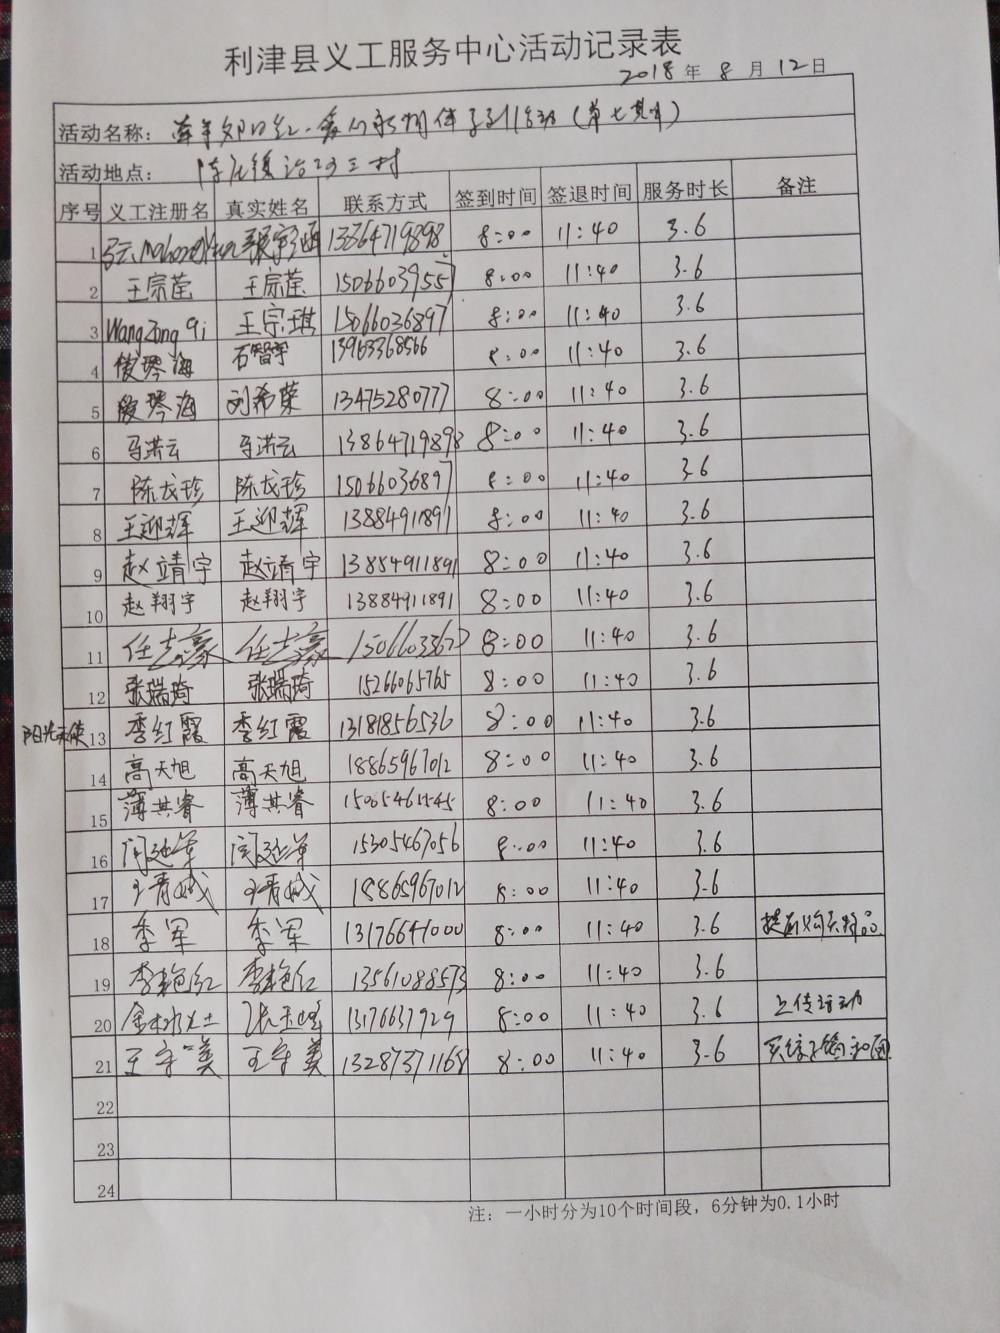 利津县义工服务中心活动记录表
2018 年 8 月 12 日
活动名称: (第七期)
活动地点: 三村
序号 义工注册名 真实姓名 联系方式 签到时间 签退时间 服务时长 备注
1 张宇涵 13864719898 8:00 11:40 3.6
2 王宗莹 王宗莹 8:00 11:40 3.6
3 WangZong qi 王宗琪 15066036897 8:00 11:40 3.6
4 俊琴海 石智宇 13963368566 8:00 11:40 3.6
5 俊琴海 刘希荣 13475280777 8:00 11:40 3.6
6 马洪云 马洪云 13864719898 8:00 11:40 3.6
7 陈龙珍 陈龙珍 15066036897 8:00 11:40 3.6
8 王迎辉 王迎辉 13884911891 8:00 11:40 3.6
9 赵靖宇 赵靖宇 13884911891 8:00 11:40 3.6
10 赵翔宇 赵翔宇 13884911891 8:00 11:40 3.6
11 任志豪 任志豪 8:00 11:40 3.6
12 张瑞琦 张瑞琦 15266065765 8:00 11:40 3.6
阳光天使 13 李红霞 李红霞 13181856536 8:00 11:40 3.6
14 高天旭 高天旭 18865967012 8:00 11:40 3.6
15 薄其睿 薄其睿 8:00 11:40 3.6
16 闫延草 闫延草 15305467056 8:00 11:40 3.6
17 18865967012 8:00 11:40 3.6
18 李军 李军 13176641000 8:00 11:40 3.6
19 李艳红 李艳红 13561088573 8:00 11:40 3.6
20 13176637929 8:00 11:40 3.6 上传活动
21 王守美 王守美 13287371168 8:00 11:40 3.6
22
23
24
注: 一小时分为10个时间段，6分钟为0.1小时